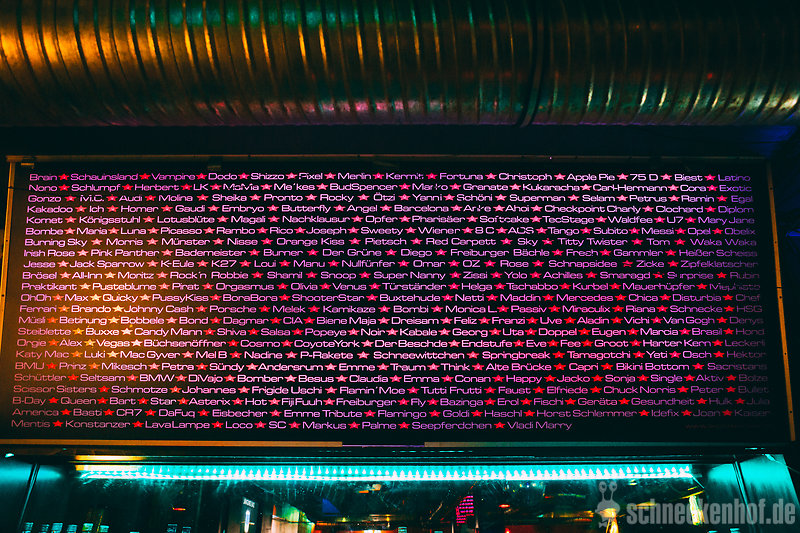 Brain★Schauinsland★Vampire★Dodo★Shizzo★Pixel★Merlin★Kermit★Fortuna★Christoph★Apple Pie★75 D★Biest★Latino
Nono★Schlumpf★Herbert★LK★MaMia★Me'kes★BudSpencer★Marko★Granate★Kukaracha★Carl-Hermann★Cora★Exotic
Gonzo★M.C.★Audi★Molina★Sheika★Pronto★Rocky★Ötzi★Yanni★Schöni★Superman★Selam★Petrus★Ramin★Egal
Kakadoo★Ich★Homer★Gaudi★Embryo★Butterfly★Angel★Barcelona★Arke★Ahoi★Checkpoint Charly★Clochard★Diplom
Komet★Königsstuhl★Lotusblüte★Magali★Nachklausur★Opfer★Pharisäer★Softcake★TocStage★Waldfee★J7★Mary Jane
Bombe★Maria★Luna★Picasso★Rambo★Rico★Joseph★Sweety★Wiener★8 C★ADS★Tango★Subito★Messi★Opel★Obelix
Burning Sky★Morris★Münster★Nisse★Orange Kiss★Pietsch★Red Carpett★Sky★Titty Twister★Tom★Waka Waka
Irish Rose★Pink Panther★Bademeister★Burner★Der Grüne★Diego★Freiburger Bächle★Frech★Gammler★Heißer Scheiss
Jesse★Jack Sparrow★K-Eule★K27★Loui★Manu★Nullfünfer★Omar★OZ★Rose★Schnapsidee★Zicke★Zipfelklatscher
Brösel★All-Inn★Moritz★Rock'n Robbie★Shamil★Snoop★Super Nanny★Zissi★Yolo★Achilles★Smaragd★Surprise★Rubin
Praktikant★Pusteblume★Pirat★Orgasmus★Olivia★Venus★Türständer★Helga★Tschabbo★Kurbel★Mauerhüpfer★Mephisto
OhOh★Max★Quicky★PussyKiss★BoraBora★ShooterStar★Buxtehude★Netti★Maddin★Mercedes★Chica★Disturbia★Chef
Ferrari★Brando★Johnny Cash★Porsche★Melek★Kamikaze★Bombi★Monica L.★Passiv★Miraculix★Riana★Schnecke★HSG
Müsli★Bethung★Bobbele★Bond★Dagmar★CIA★Biene Maja★Dreisam★Feliz★Franz★Live★Aladin★Vichi★Van Gogh★Denys
Steiblette★Buxxe★Candy Mann★Shiva★Salsa★Popeye★Noir★Kabale★Georg★Uta★Doppel★Eugen★Marcia★Brasil★Hand
Orgie★Alex★Vegas★Büchsenöffner★Cosmo★CoyoteYork★Der Beschde★Endstufe★Eve★Fee★Groot★Harter Kern★Leckerli
Katy Mac★Luki★Mac Gyver★Mel B★Nadine★P-Rakete★Schneewittchen★Springbreak★Tamagotchi★Yeti★Osch★Hektor
BMU★Prinz★Mikesch★Petra★Sündy★Andersrum★Emme★Traum★Think★Alte Brücke★Capri★Bikini Bottom★Sacristans
Schüttler★Seltsam★BMW★DiVajo★Bomber★Besus★Claudia★Emma★Conan★Happy★Jacko★Sonja★Single★Aktiv★Bolze
Scissor Sisters★Schmotze★Johannes★Frigide Uschi★Flamin' Moe★Tutti Frutti★Faust★Elfriede★Chuck Norris★Peter★Bullet
B-Day★Queen★Bart★Star★Asterix★Hot★Fiji Fuuh★Freiburger★Fly★Bazinga★Erol★Fischi★Geräta★Gesundheit★Hulk★Julia
America★Basti★CR7★DaFuq★Eisbecher★Emme Tribute★Flamingo★Goldi★Haschl★Horst Schlemmer★Idefix★Joan★Kaiser
Mentis★Konstanzer★LavaLampe★Loco★SC★Markus★Palme★Seepferdchen★Vladi Marry
schneckenhof.de